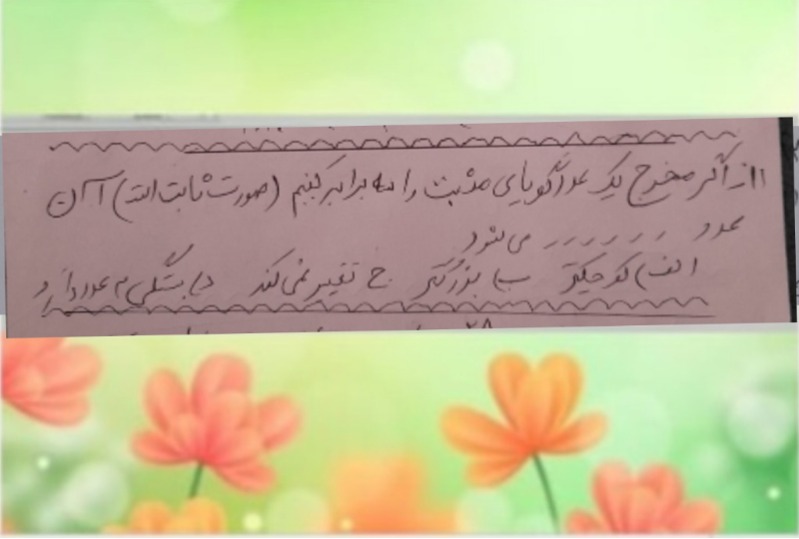 ۱۱ـ اگر مخرج یک عدد گویای مثبت را سه برابر کنیم (صورت ثابت است) آن
عدد ـ ـ ـ ـ ـ ـ ـ می شود
الف) کوچکتر ب) بزرگتر ج تغییر نمی کند د) بستگی به عدد دارد
۲۸